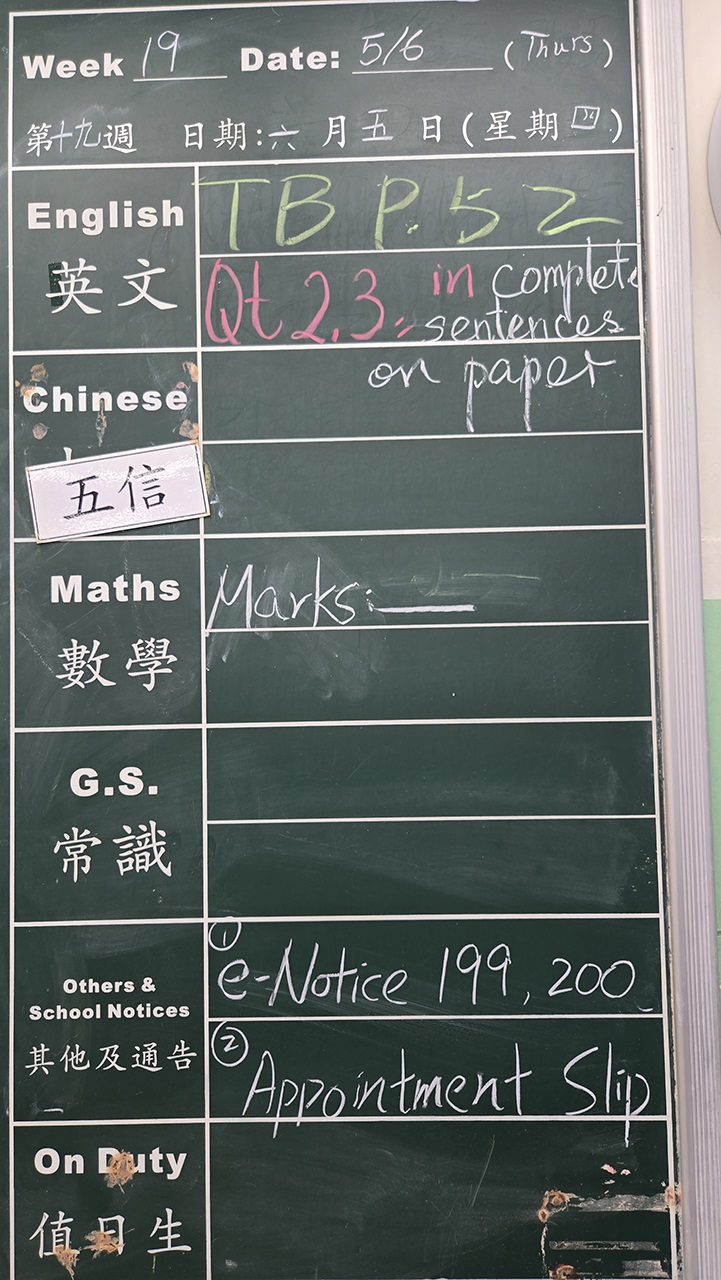 Week 19 Date: 5/6 (Thurs)
第十九週 日期:六月五日(星期四)
English
TB P.52
英文
Qt 2,3, in complete
sentences
on paper
Chinese
五信
Maths
Marks:
數學
G.S.
常識
Others &
School Notices
其他及通告
① e-Notice 199, 200
② Appointment Slip
On Duty
值日生